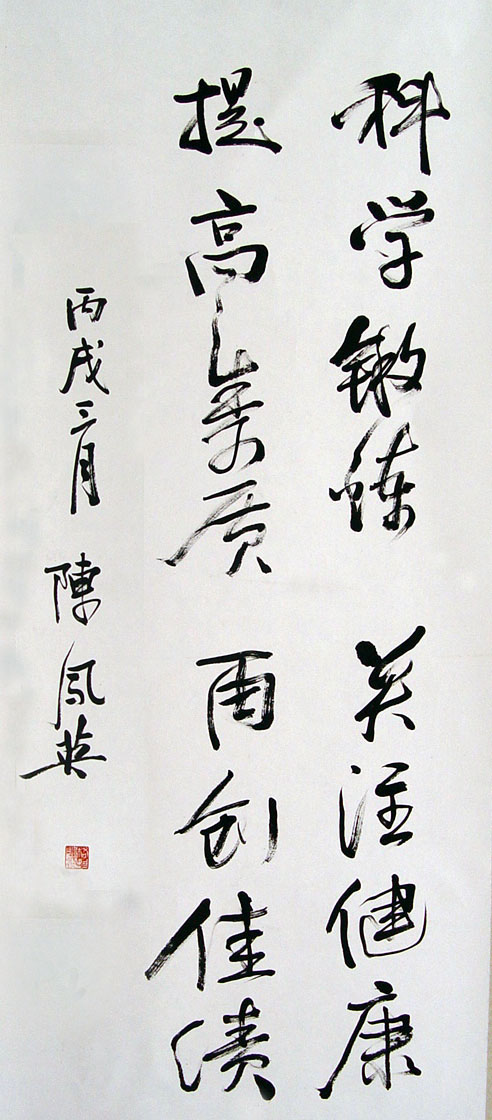 科学锻炼 关注健康
提高素质 再创佳绩
丙戌三月 陳凤英